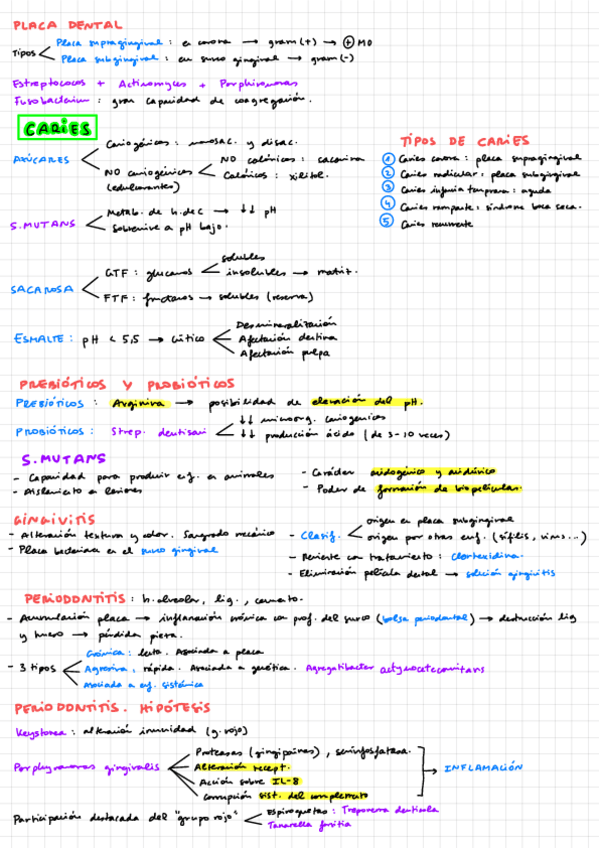 PLACA DENTAL
Tipos
Placa supragingival : en corona → gram(+) → + MO
Placa subgingival : en surco gingival → gram(-)
Estreptococos + Actinomyces + Porphiromonas
Fusobacterium : gran capacidad de coagregación.
CARIES
AZÚCARES
Cariogénicos : monosac. y disac.
NO cariogénicos (edulcorantes)
NO calóricos : sacarina
Calóricos : xilitol.
S.MUTANS
Metab. de h. de c → ↓↓ pH
Sobrevive a pH bajo.
TIPOS DE CARIES
1 Caries corona : placa supragingival
2 Caries radicular : placa subgingival
3 Caries infancia temprana : aguda
4 Caries rampante : síndrome boca seca.
5 Caries recurrente
SACAROSA
GTF : glucanos
solubles
insolubles → matriz.
FTF : fructanos → solubles (reserva)
ESMALTE : pH < 5,5 → crítico
Desmineralización
Afectación dentina
Afectación pulpa
PREBIÓTICOS Y PROBIÓTICOS
PREBIÓTICOS : Arginina → posibilidad de elevación del pH.
PROBIÓTICOS : Strep. dentisani
↓↓ microorg. cariogénicos
↓↓ producción ácido (de 3-10 veces)
S.MUTANS
- Capacidad para producir enf. en animales
- Aislamiento en lesiones
- Carácter acidogénico y acidúrico
- Poder de formación de biopelículas.
GINGIVITIS
- Alteración textura y color. Sangrado mecánico
- Placa bacteriana en el surco gingival
- Clasif.
origen en placa subgingival
origen por otras enf. (sífilis, virus...)
- Revierte con tratamiento : Clorhexidina.
- Eliminación película dental → solución gingivitis
PERIODONTITIS : h. alveolar, lig., cemento.
- Acumulación placa → inflamación crónica con prof. del surco (bolsa periodontal) → destrucción lig
y hueso → pérdida pieza.
- 3 tipos
Crónica : lenta. Asociada a placa
Agresiva, rápida. Asociada a genética. Agregatibacter actynocetecomitans
Asociada a enf. sistémica
PERIODONTITIS. HIPÓTESIS
Keystone : alteración inmunidad (g. rojo)
Porphyromonas gingivalis
Proteasas (gingipaínas), serinfosfatasa.
Alteración recept.
Acción sobre IL-8
Corrupción sist. del complemento
→ INFLAMACIÓN
Participación destacada del "grupo rojo"
Espiroquetas : Treponema denticola
Tanarella forsitia